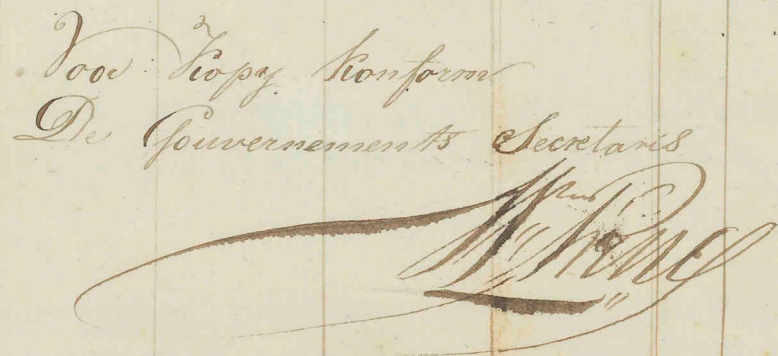 Voor Kopy Konform
De Gouvernements Secretaris